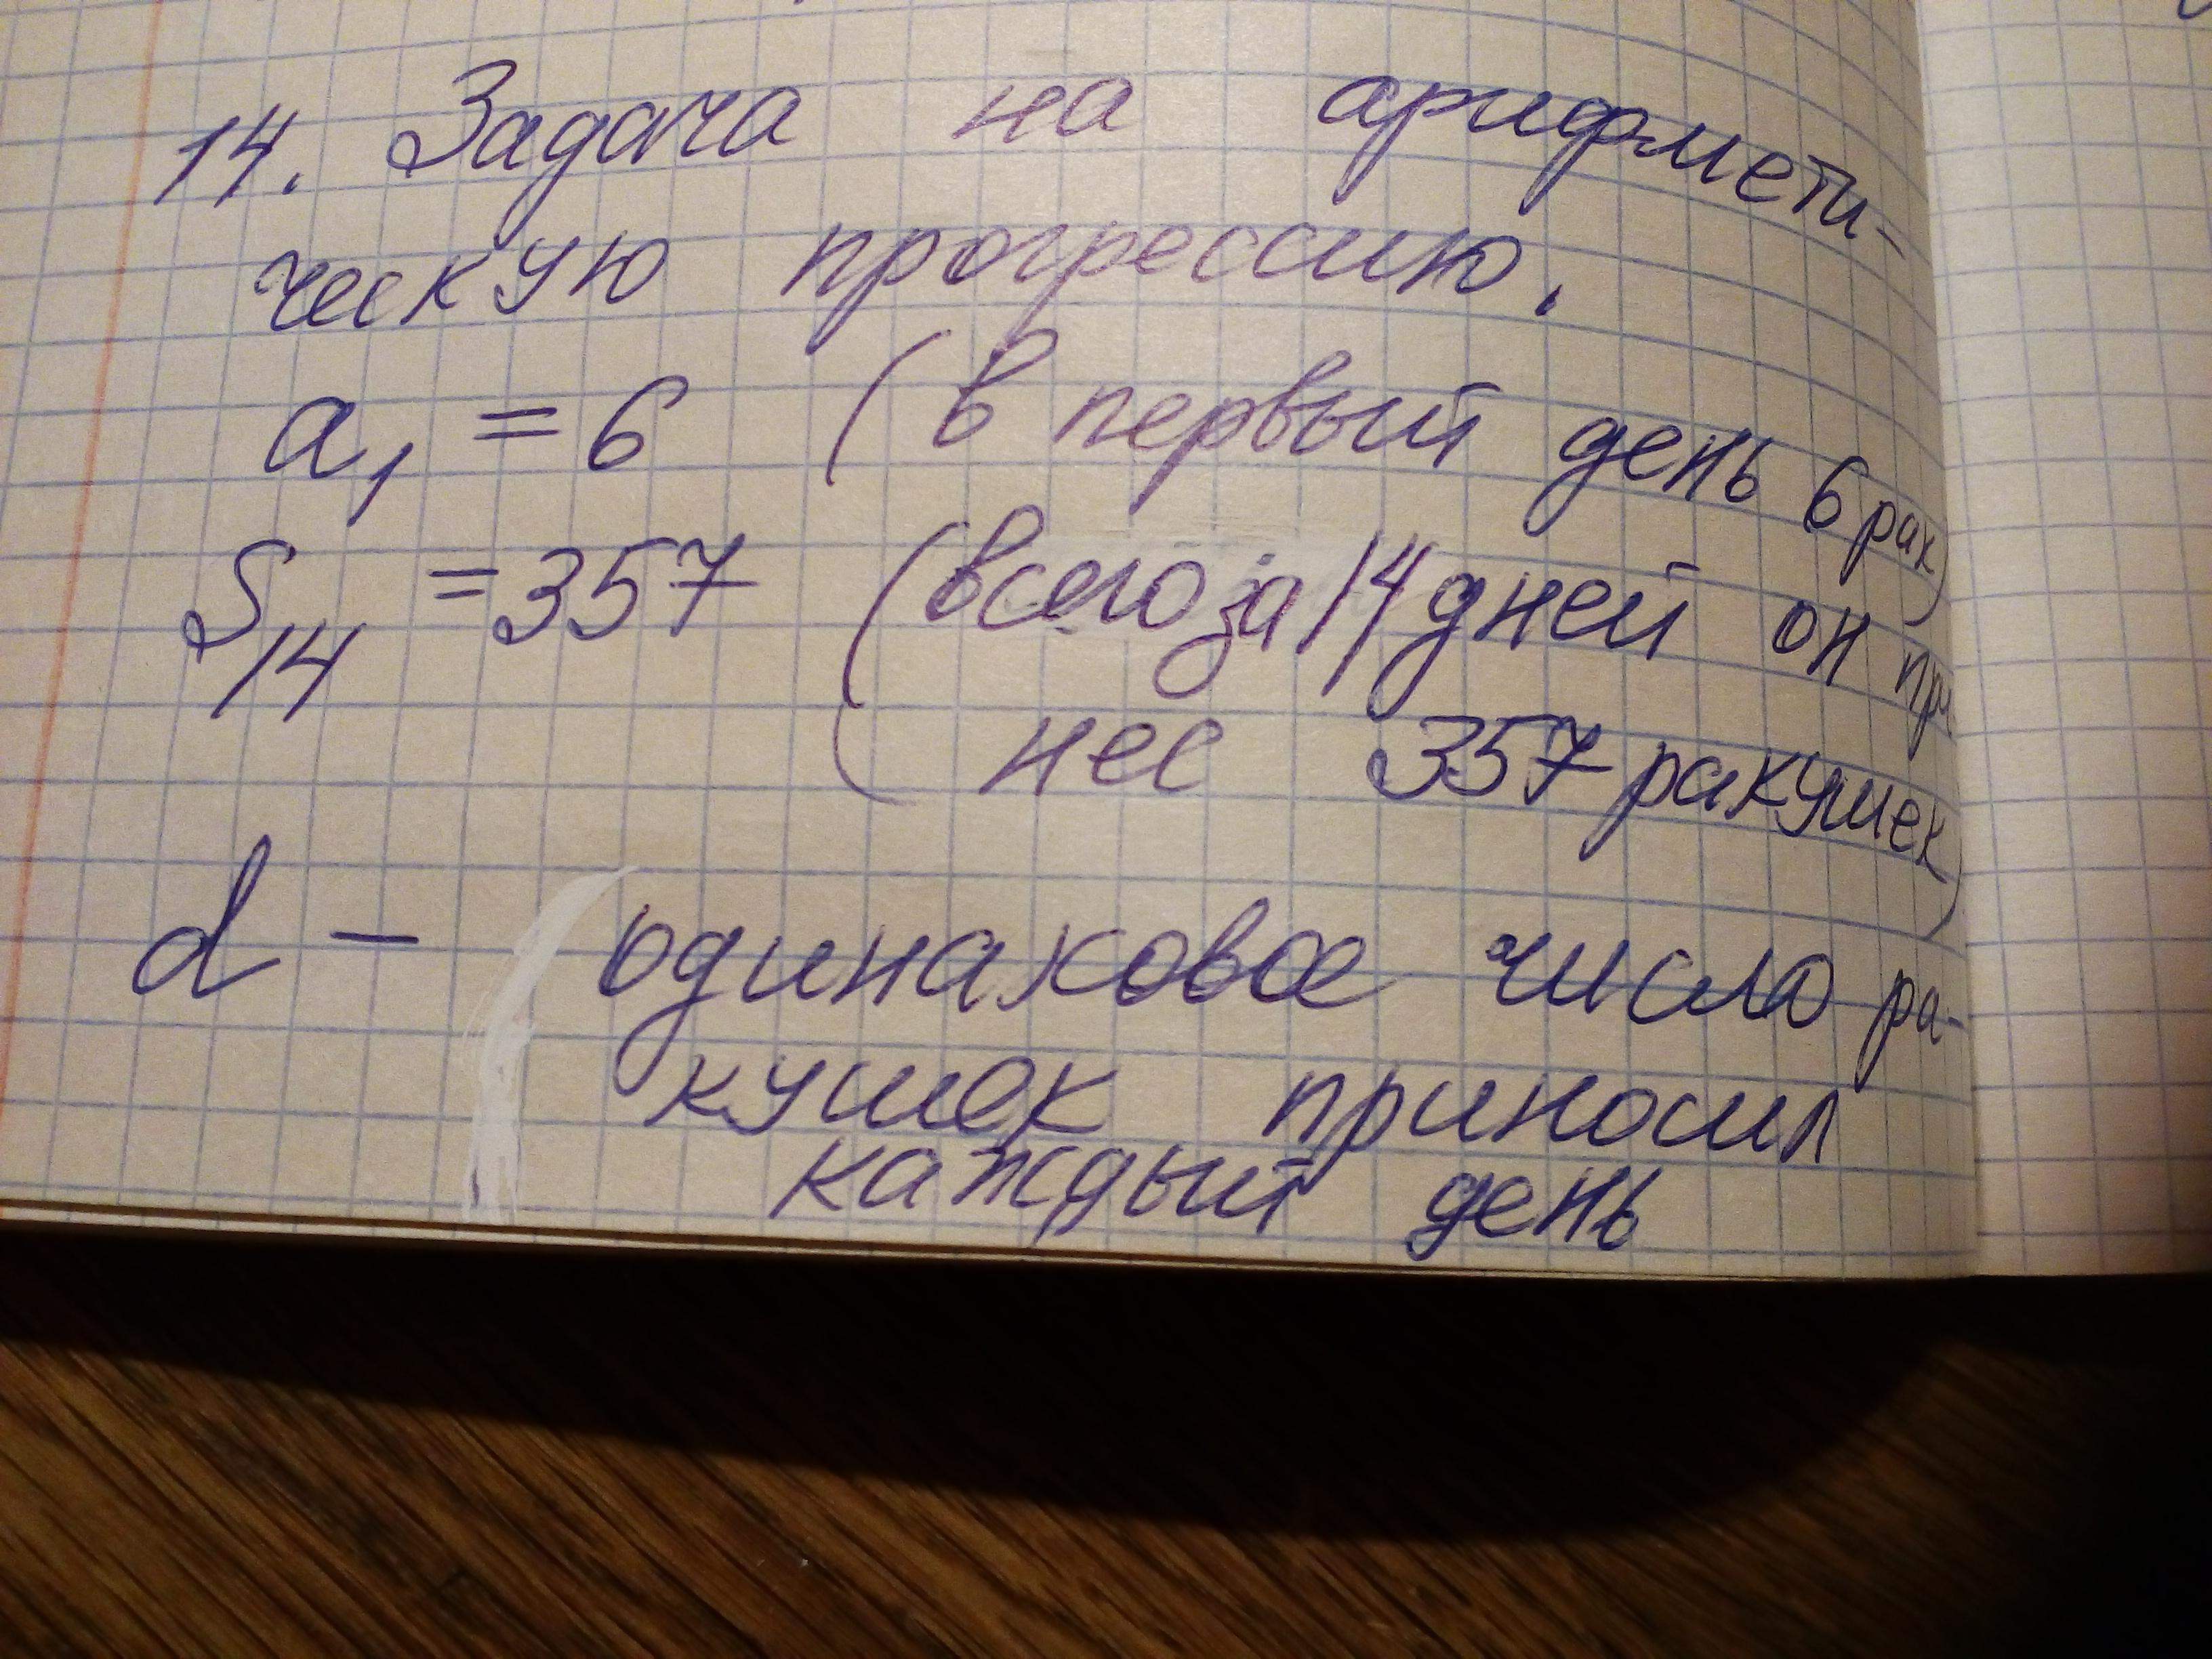 14. Задача на арифмети-
ческую прогрессию.
a₁ = 6 (в первый день 6 рак)
S₁₄ = 357 (всего за 14 дней он при
нес 357 ракушек)
d – одинаковое число ра-
кушек приносил
каждый день